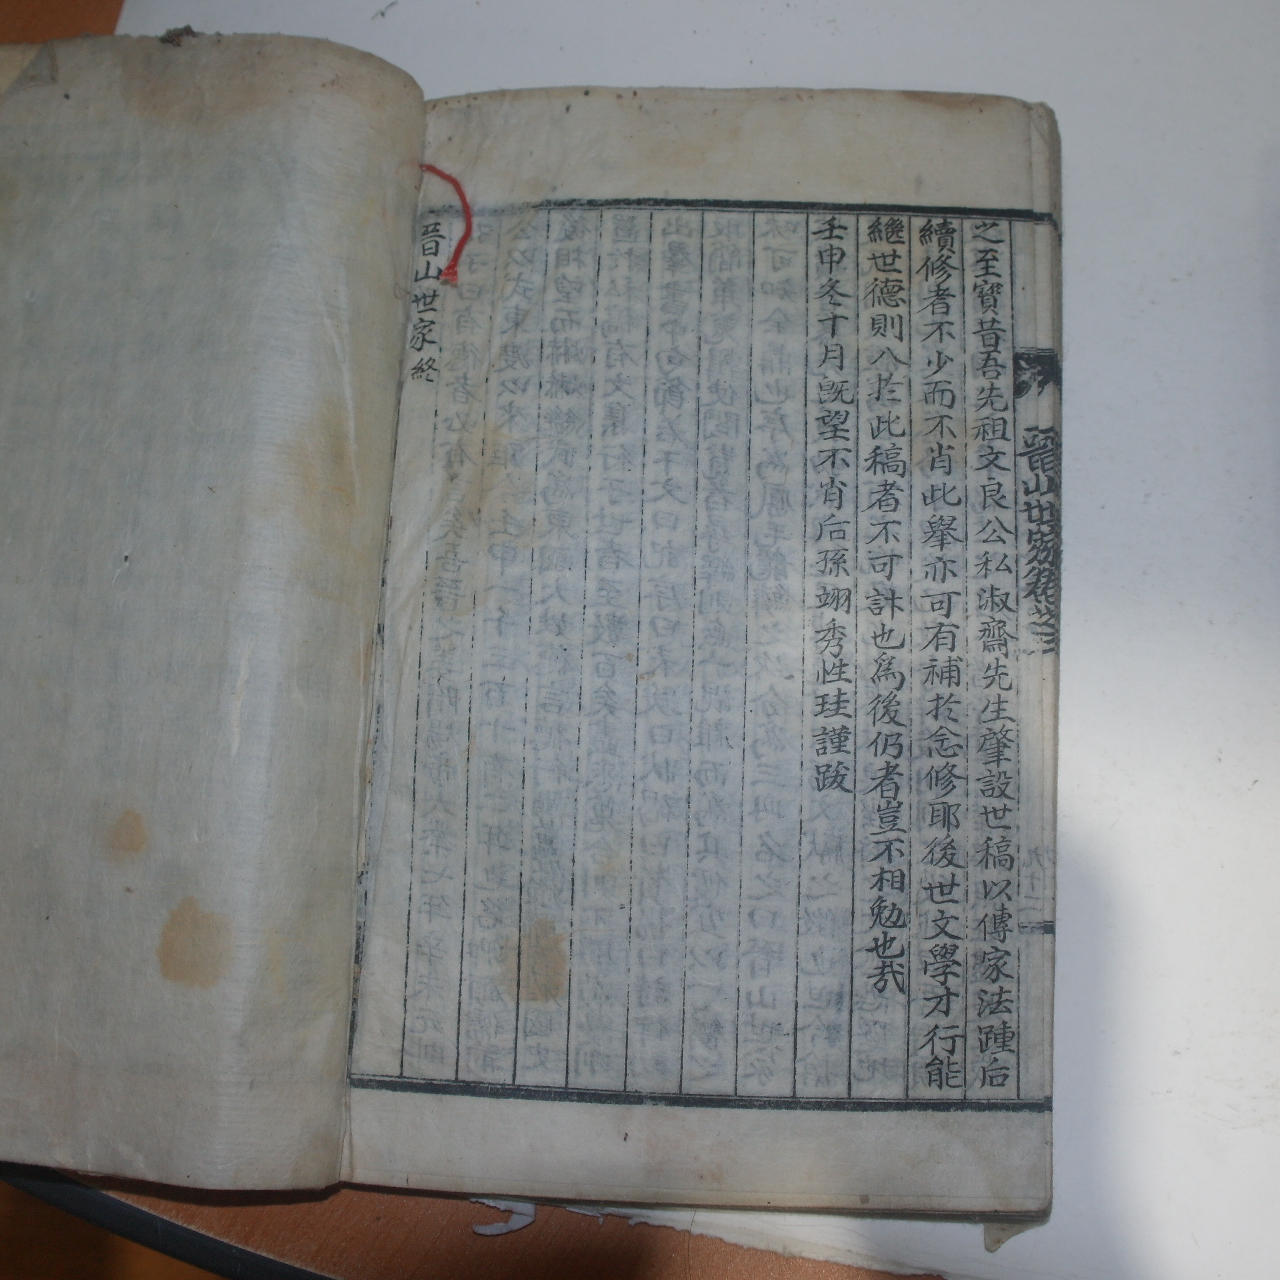 之至寶昔吾先祖文良公私淑齋先生肇設世稿以傳家法踵后
續修者不少而不肖此擧亦可有補於念修耶後世文學才行能
繼世德則入於此稿者不可計也爲後仍者豈不相勉也哉
壬申冬十月旣望不肖后孫翊秀性珪謹跋
晋山世家終
晋山世家卷之三
九十二